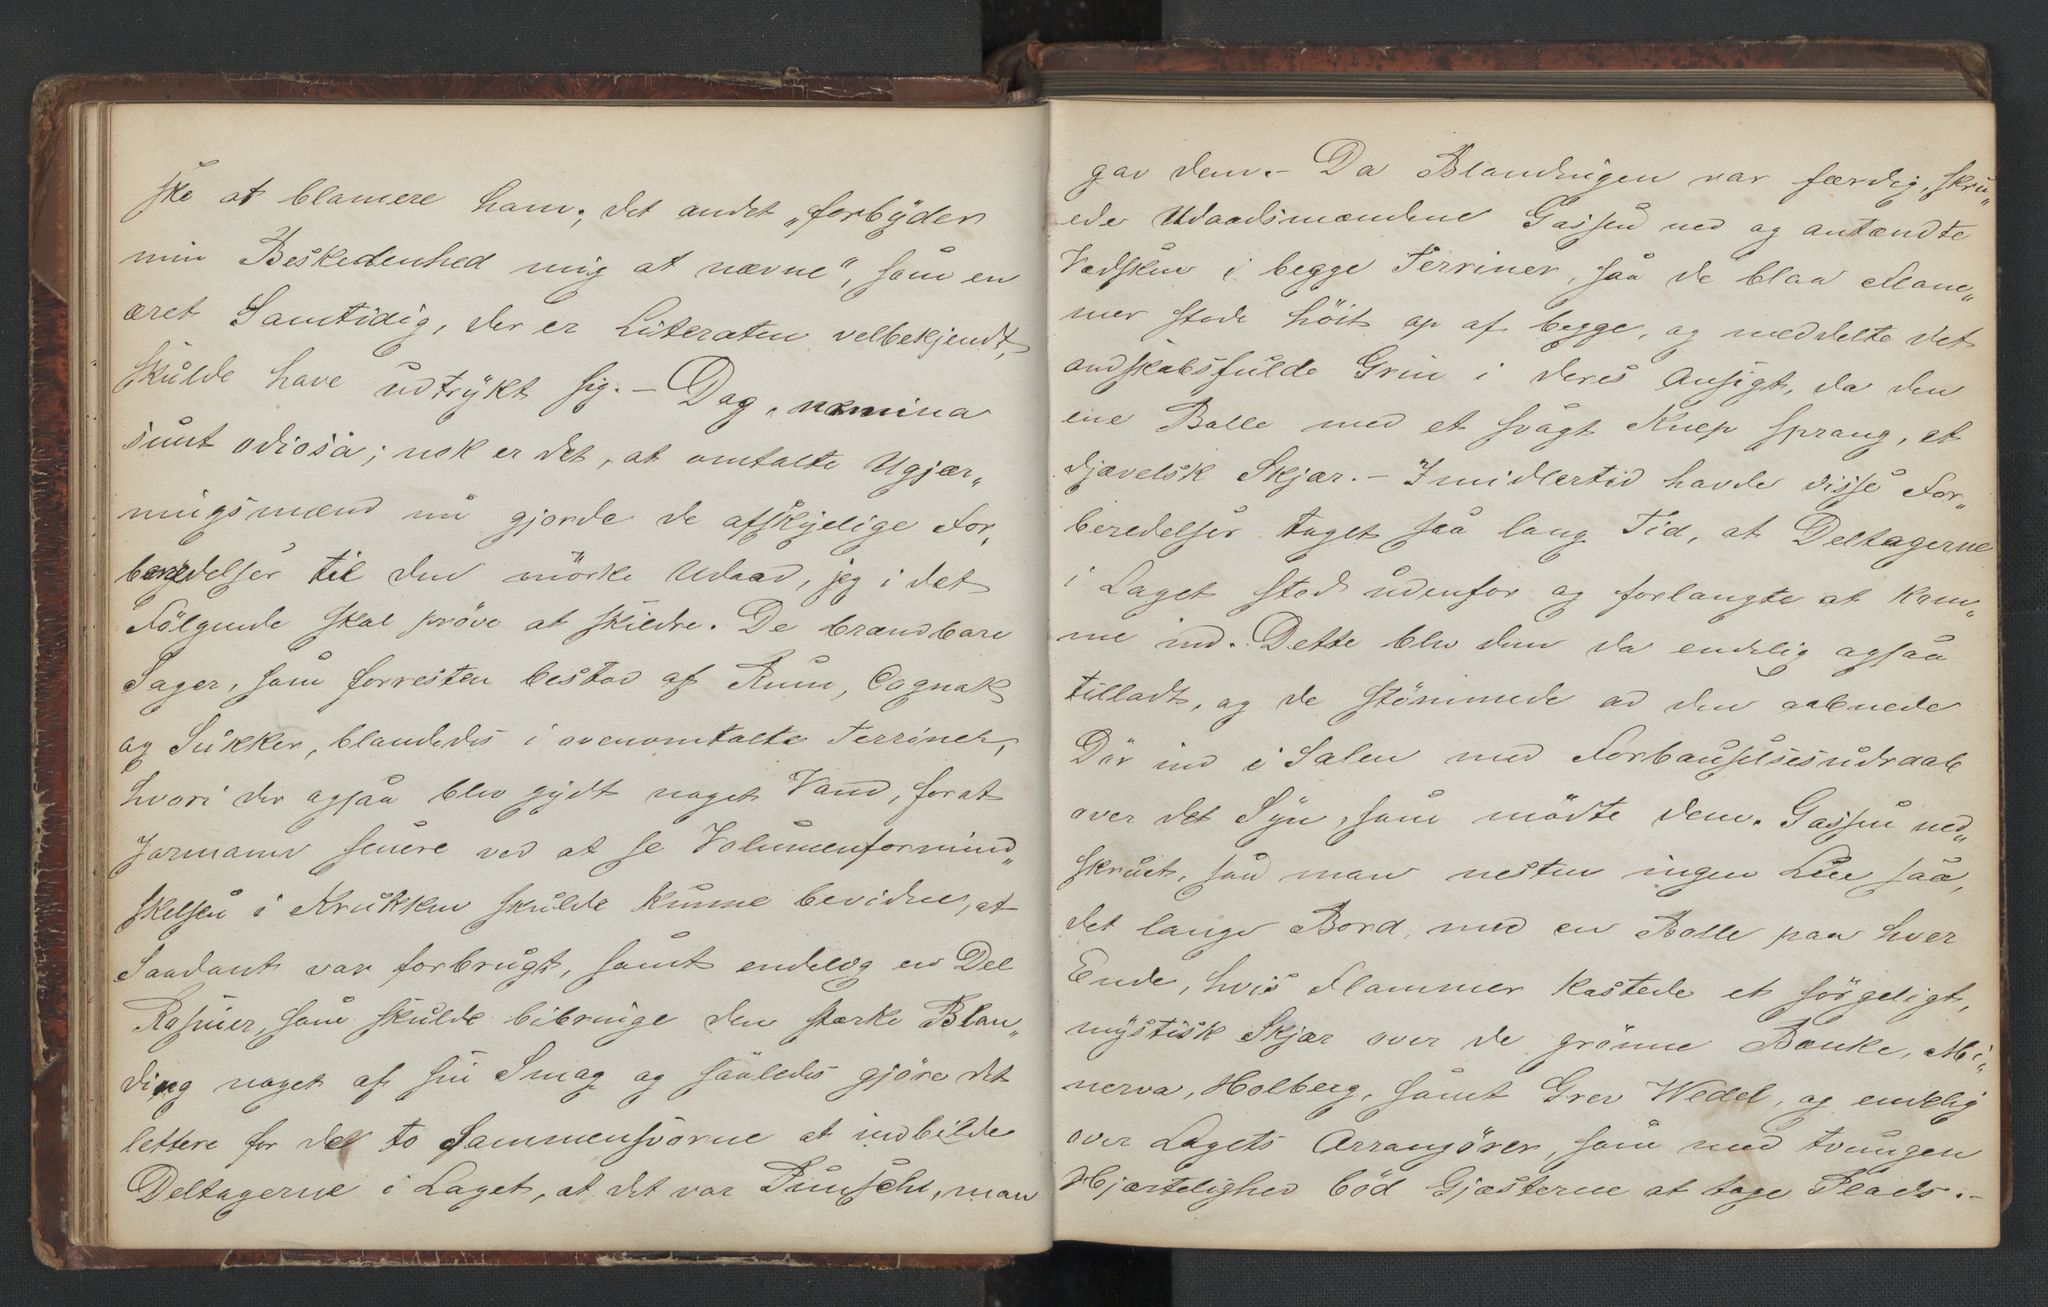 ske at blamere ham; det andet „forbyder
min Beskedenhed mig at nævne”, som en
æret Samtidig, der er Literaten velbekjendt,
skulde have udtrykt sig. – Dog, nomina
sunt odiosa; nok er det, at omtalte Ugjær„
ningsmænd nu gjorde de afskyelige For„
beredelser til den mörke Udaad, jeg i det
Fölgende skal pröve at skildre. De brændbare
Sager, som forresten bestod af Rum, Cognak
og Sukker, blandedes i ovenomtalte Terriner,
hvori der ogsaa blev gydt noget Vand, forat
Jormann senere ved at se Volumenformind„
skelsen i Krukken skulde kunne bevidne, at
Saadant var forbrugt, samt endelig en Del
Rosiner, som skulde bibringe den stærke Blan„
ding noget af sin Smag og saaledes gjöre det
lettere for de to Sammensvorne at indbilde
Deltagerne i Laget, at det var Punsch, man
gav dem. – Da Blandingen var færdig, skru„
ede Udaadsmændene Gassen ned og antændte
Vædsken i begge Terriner, saa de blaa Flam„
mer stode höit op af begge, og meddelte det
ondskabsfulde Grin i deres Ansigt, da den
ene Bolle med et svagt Knep sprang, et
djævelsk Skjær. – Imidlertid havde disse For„
beredelser taget saa lang Tid, at Deltagerne
i Laget stod udenfor og forlangte at kom„
me ind. Dette blev dem da endelig ogsaa
tilladt, og de stömmede ad den aabnede
Dör ind i Salen med Forbauselsesudraab
over det Syn, som mödte dem. Gassen ned„
skruet, saa man nesten ingen Lue saa,
det lange Bord, med en Bolle paa hver
Ende, hvis Flammer kastede et sörgeligt,
mystisk Skjær over de grönne Bænke, Mi„
nerva, Holberg, samt Grev Wedel, og endelig
over Lagets Arrangörer, som med tvungen
Hjertelighed böd Gjæsterne at tage Plads. –